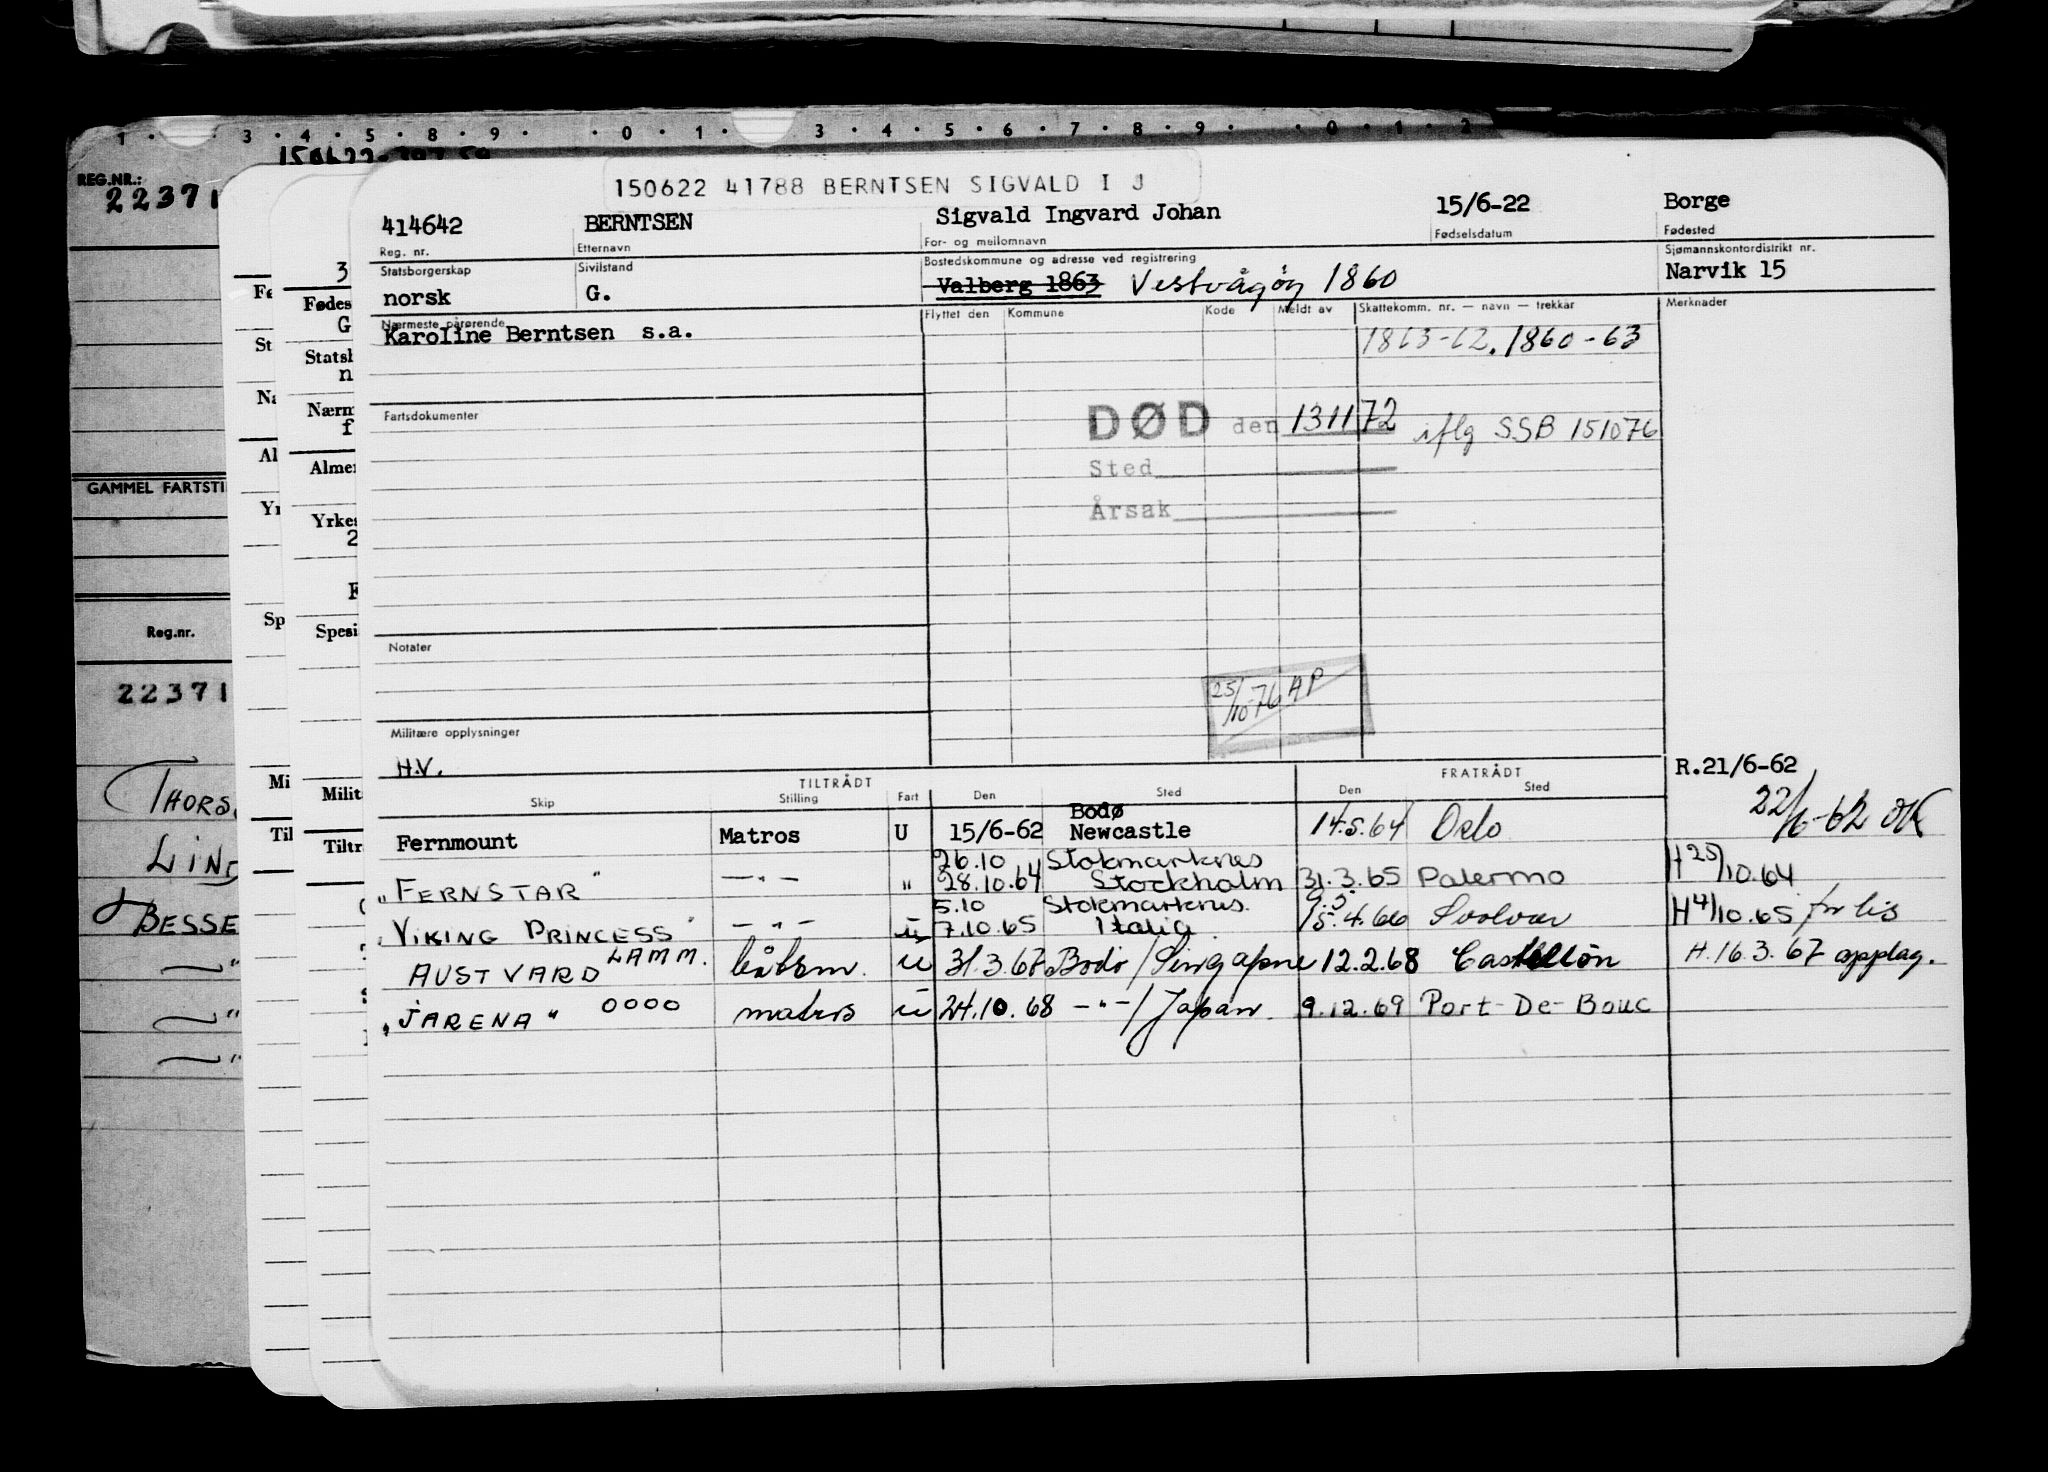 1 3 4 5 8 9 0 1 3 4 5 6 7 8 9 0 1 2
REG.NR.:
22371
GAMMEL FARTSTI
Reg.nr.
22371
THORS
LIND
BESSE
3
Fødes
G
Statsb
n
Nærm
f
Almen
Yrkes
2
Spesi
Milit
Tiltr
St
Na
Al
Yr
Sp
Mi
Til
150622 41788 BERNTSEN SIGVALD I J
414642 BERNTSEN Sigvald Ingvard Johan 15/6-22 Borge
Reg. nr. Etternavn For- og mellomnavn Fødselsdatum Fødested
Statsborgerskap Sivilstand Bostedskommune og adresse ved registrering Sjømannskontordistrikt nr.
norsk G. Valberg 1863 Vestvågøy 1860 Narvik 15
Nærmeste pårørende Flyttet den Kommune Kode Meldt av Skattekomm. nr. — navn — trekkår Merknader
Karoline Berntsen s.a. 1863-62. 1860-63
Fartsdokumenter
DØD den 131172 iflg SSB 151076
Sted
Årsak
Notater
25/10-76 AP
Militære opplysninger
H.V.
TILTRÅDT FRATRÅDT R.21/6-62
Skip Stilling Fart Den Sted Den Sted
22/6-62 OK
Bodø
Fernmount Matros U 15/6-62 Newcastle 14.5.64 Oslo
26.10 Stokmarknes
"FERNSTAR" —"— " 28.10.64 Stockholm 31.3.65 Palermo H 25/10.64
5.10 Stokmarknes 9.5
"VIKING PRINCESS" —"— u 7.10.65 Italia 15.4.66 Svolvær H 4/10.65 forlis
AUSTVARD LAMM. båtsm. u 31.3.67 Bodø/Singapore 12.2.68 Castellón H.16.3.67 opplag.
"JARENA" OOOO matros u 24.10.68 —"—/Japan. 9.12.69 Port-De-Bouc